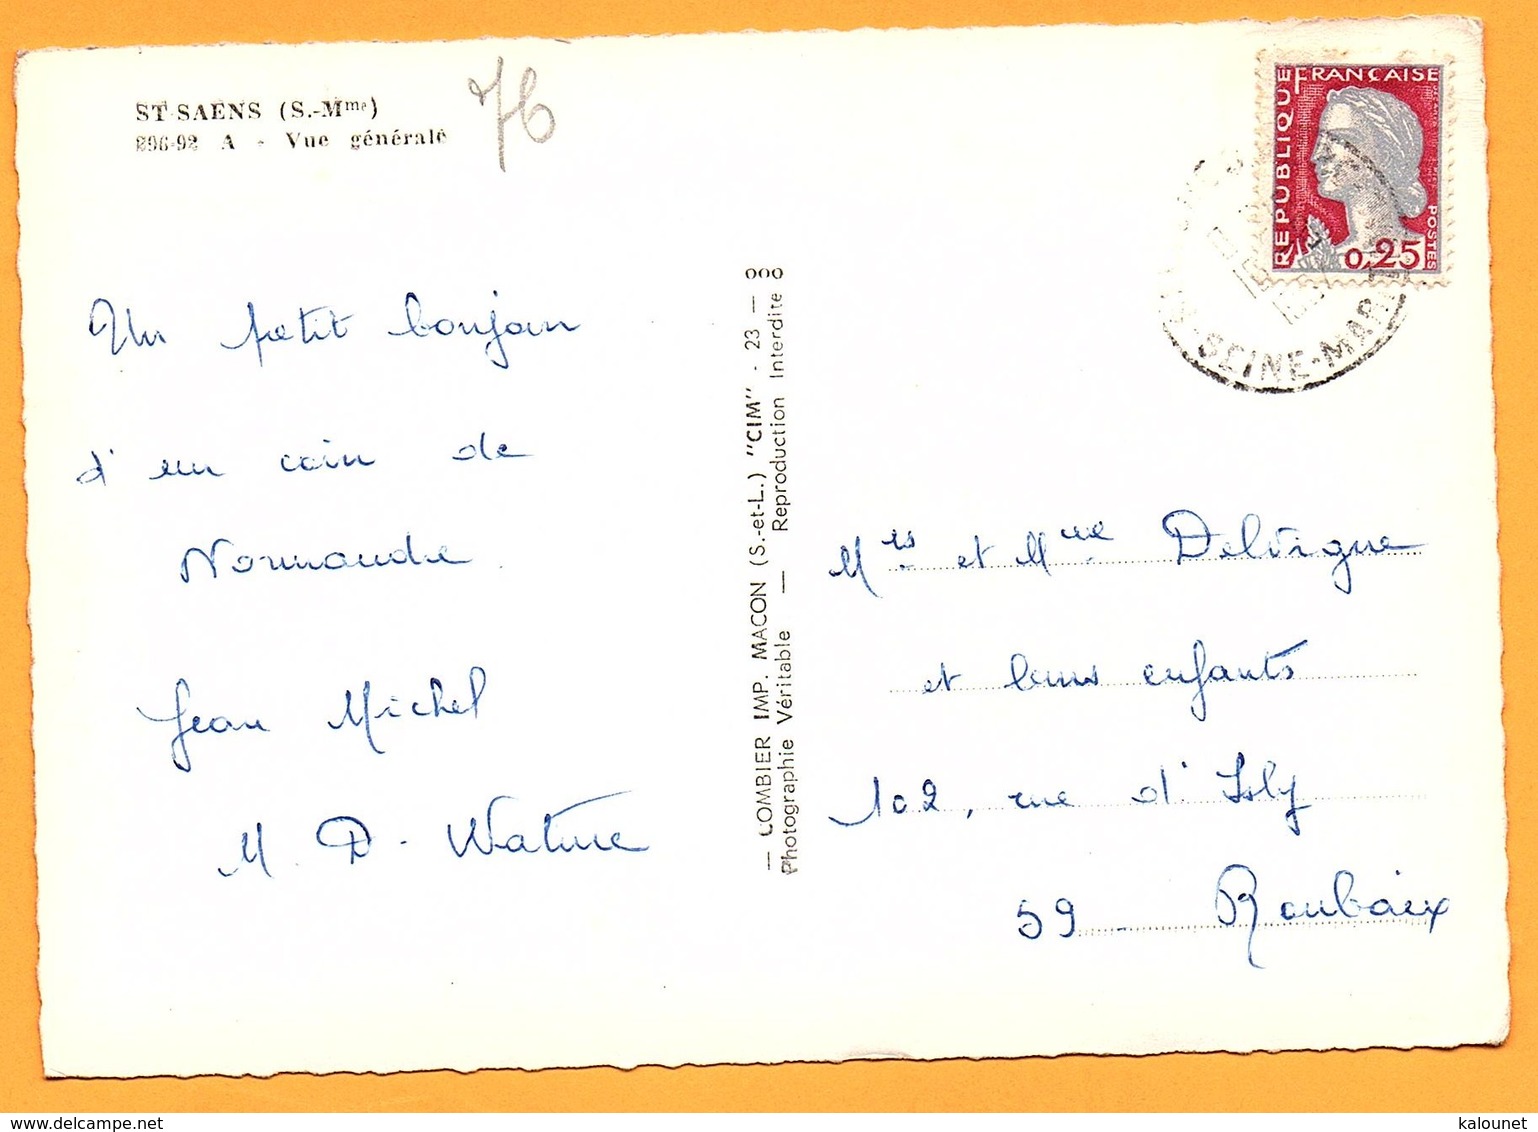 ST-SAENS (S.-Mme)
896-92 A - Vue générale
76
Un petit bonjour
d'un coin de
Normandie
Jean Michel
M. D. Watine
— COMBIER IMP. MACON (S.-et-L.) "CIM" - 23 —
Photographie Véritable — Reproduction Interdite
REPUBLIQUE FRANÇAISE
POSTES
0,25
SEINE-MARIT
Mrs et Mme Delvigne
et leurs enfants
102, rue d'Isly
59 - Roubaix
kalounet